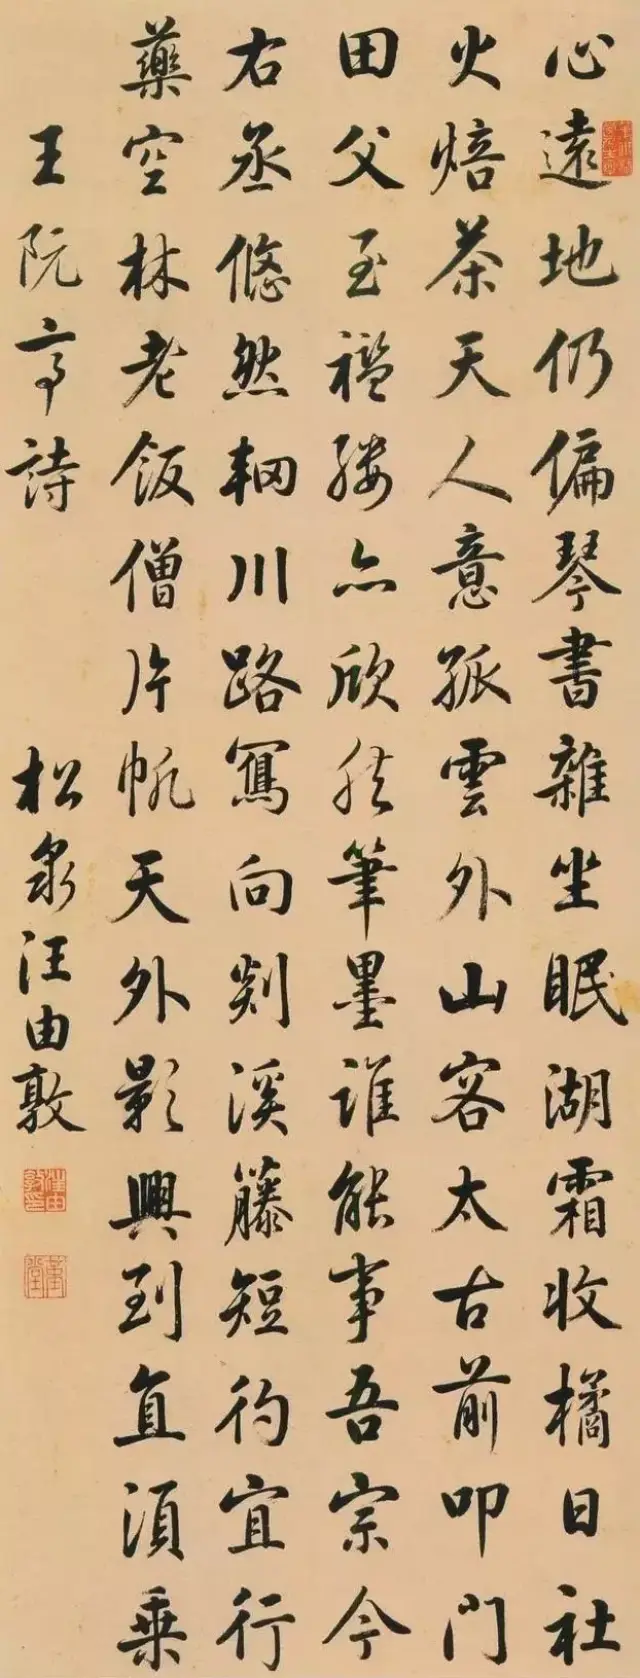 心遠地仍偏琴書雜坐眠湖霜收橘日社
火焙茶天人意孤雲外山容太古前叩門
田父至襤縷亦欣然筆墨誰能事吾宗今
右丞悠然輞川路寫向剡溪藤短彴宜行
藥空林老飯僧片帆天外影興到直須乘
王阮亭詩
松泉汪由敦
汪由敦印